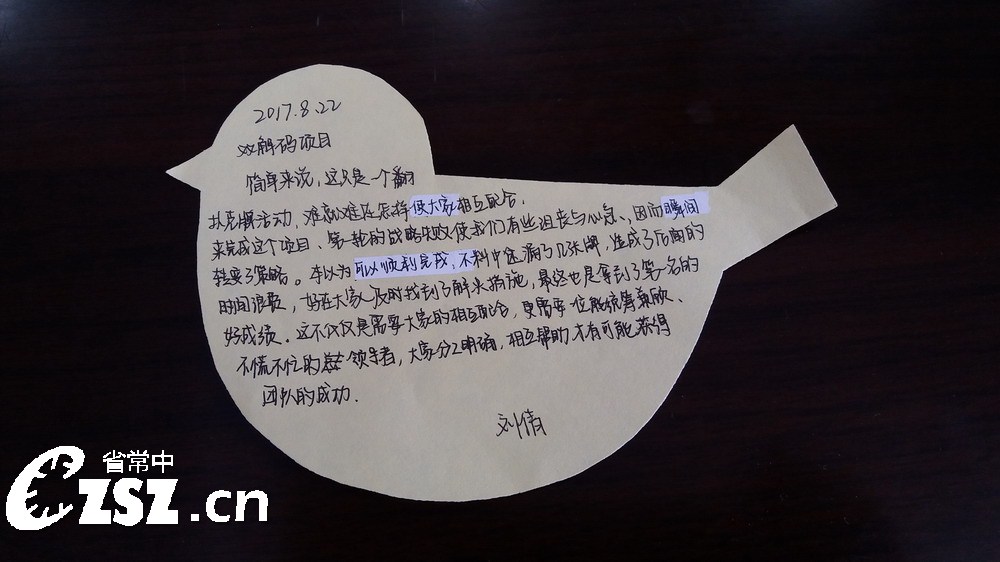 2017.8.22
双解码项目
简单来说，这只是一个翻
扑克牌活动，难就难在怎样使大家相互配合，
来完成这个项目、第一轮的战略失败使我们有些沮丧与心急、因而瞬间
转变了策略。本以为可以顺利完成，不料中途漏了几张牌，造成了后面的
时间浪费，好在大家及时找到了解决措施，最终也是拿到了第一名的
好成绩。这不仅仅是需要大家的相互配合，更需要一位能统筹兼顾、
不慌不忙的领导者，大家分工明确，相互帮助才有可能获得
团队的成功.
刘倩
省常中
CZSZ.cn